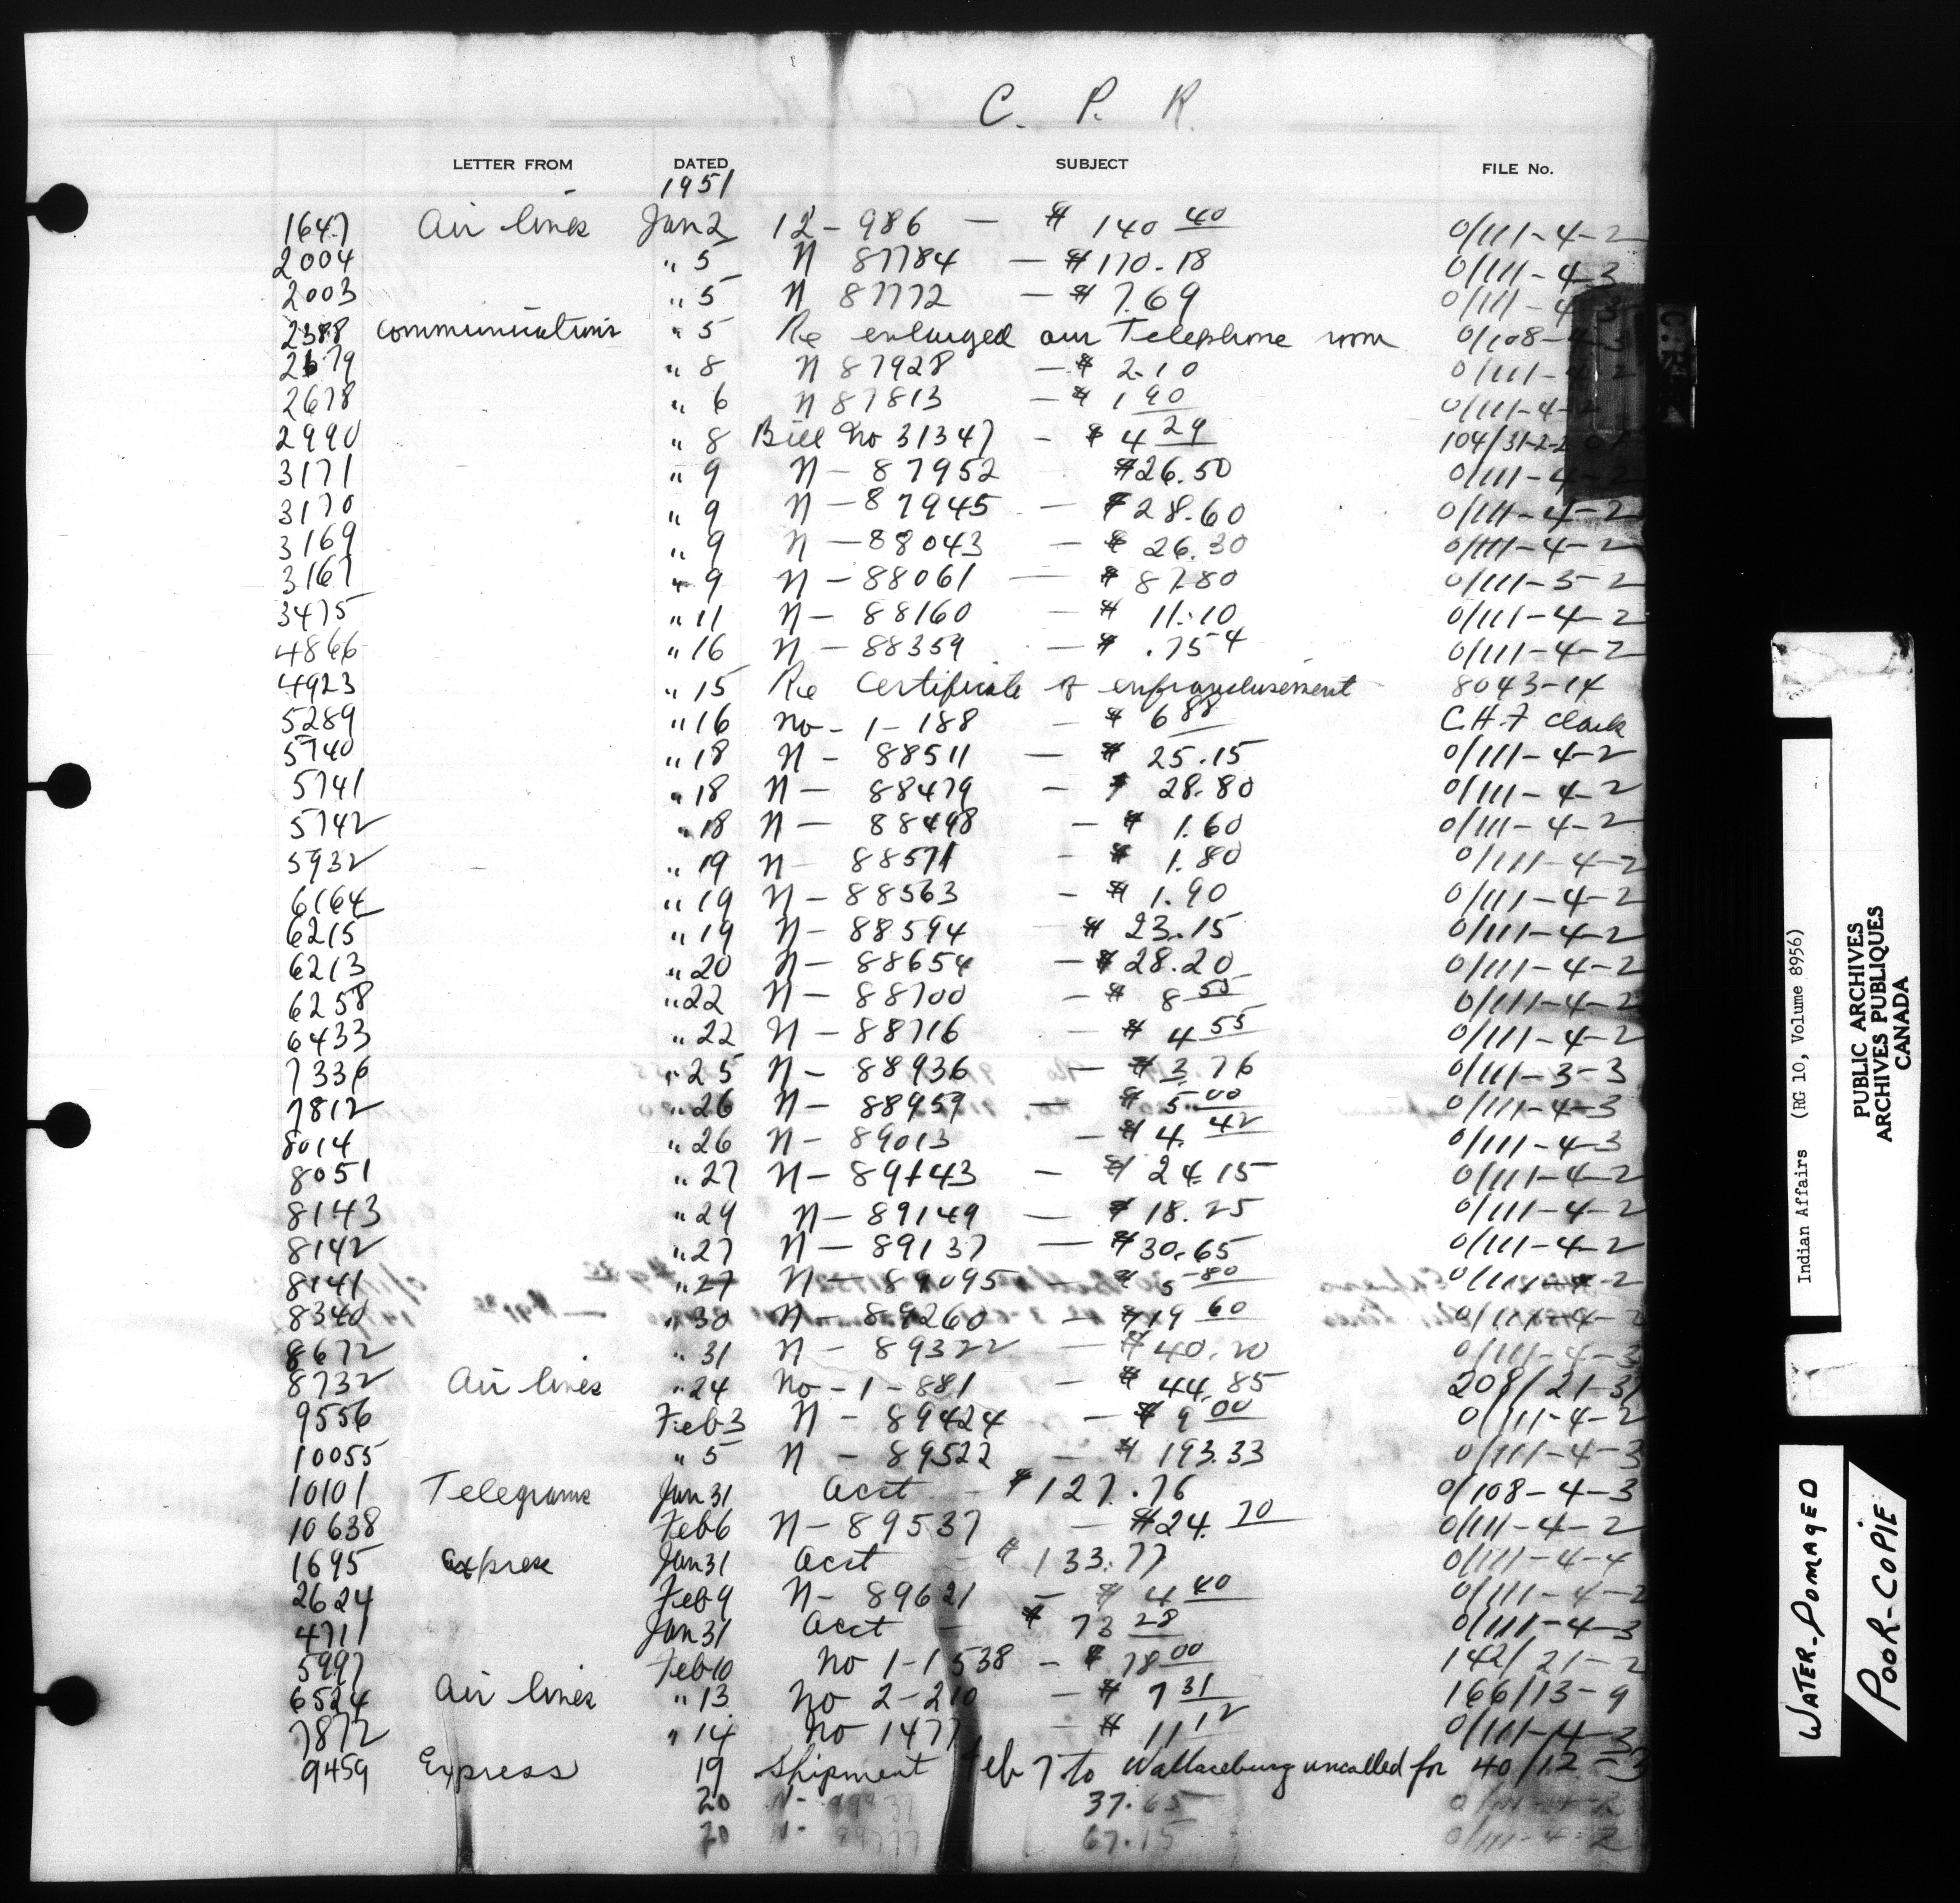 C. P. R.
LETTER FROM DATED SUBJECT FILE No.
1951
1647 Air lines Jan 2 12-986 — $ 140 40 0/111-4-2
2004 " 5 N 87784 — $170.18 0/111-4-3
2003 " 5 N 87772 — $ 7.69 0/111-4-3
2388 Communications " 5 Re enlarged our Telephone room 0/108-4-3
2679 " 8 N 87928 — $ 2.10 0/111-4-2
2678 " 6 N 87813 — $ 1 90 0/111-4-2
2990 " 8 Bill No 31347 - $ 4 29 104/31-2-2
3171 " 9 N - 87952 $26.50 0/111-4-2
3170 " 9 N - 87945 — $28.60 0/111-4-2
3169 " 9 N - 88043 — $ 26.30 0/111-4-2
3167 " 9 N - 88061 — $ 87.80 0/111-3-2
3475 " 11 N - 88160 — $ 11.10 0/111-4-2
4866 " 16 N - 88359 — $ .75 4 0/111-4-2
4923 " 15 Re Certificate of enfranchisement 8043-14
5289 " 16 No - 1 - 188 - $ 6 88 C.H.F Clark
5740 " 18 N - 88511 — $ 25.15 0/111-4-2
5741 " 18 N - 88479 - $ 28.80 0/111-4-2
5742 " 18 N - 88498 - $ 1.60 0/111-4-2
5932 " 19 N - 88571 - $ 1.80 0/111-4-2
6164 " 19 N - 88563 - $ 1.90 0/111-4-2
6215 " 19 N - 88594 - $ 23.15 0/111-4-2
6213 " 20 N - 88654 - $28.20 0/111-4-2
6258 " 22 N - 88700 - $ 8 55 0/111-4-2
6433 " 22 N - 88716 - $ 4 55 0/111-4-2
7336 " 25 N - 88936 - $ 3.76 0/111-3-3
7812 " 26 N - 88959 — $ 5 00 0/111-4-3
8014 " 26 N - 89013 - $ 4. 42 0/111-4-3
8051 " 27 N - 89143 - $ 24.15 0/111-4-2
8143 " 29 N - 89149 — $ 18.25 0/111-4-2
8142 " 27 N - 89137 — $30.65 0/111-4-2
8141 " 27 N - 89095 - $ 5 80 0/111-4-2
8340 " 30 N - 89260 - $19 60 0/111-4-2
8672 " 31 N - 89322 — $40.20 0/111-4-3
8732 Air lines " 24 No - 1 - 881 - $ 44.85 208/21-3
9556 Feb 3 N - 89424 - $ 9 00 0/111-4-2
10055 " 5 N - 89522 - $ 193.33 0/111-4-3
10101 Telegrams Jan 31 Acct - $127.76 0/108-4-3
10638 Feb 6 N - 89537 - $24. 70 0/111-4-2
1695 Express Jan 31 Acct - $ 133.77 0/111-4-4
2624 Feb 9 N - 89621 - $ 4 40 0/111-4-2
4711 Jan 31 Acct - $ 73 28 0/111-4-3
5997 Feb 10 No 1-1538 - $ 78 00 142/21-2
6524 Air lines " 13 No 2-210 - $ 7 31 166/13-9
7872 " 14 No 1477 - $ 11 12 0/111-4-3
9459 Express 19 Shipment Feb 7 to Wallaceburg uncalled for 40/12-3
20 N- 37.65 0/111-4-2
20 N- 67.15 0/111-4-2
C.P.R.
Indian Affairs (RG 10, Volume 8956)
PUBLIC ARCHIVES
ARCHIVES PUBLIQUES
CANADA
WATER-DOMAGED
POOR-COPIE